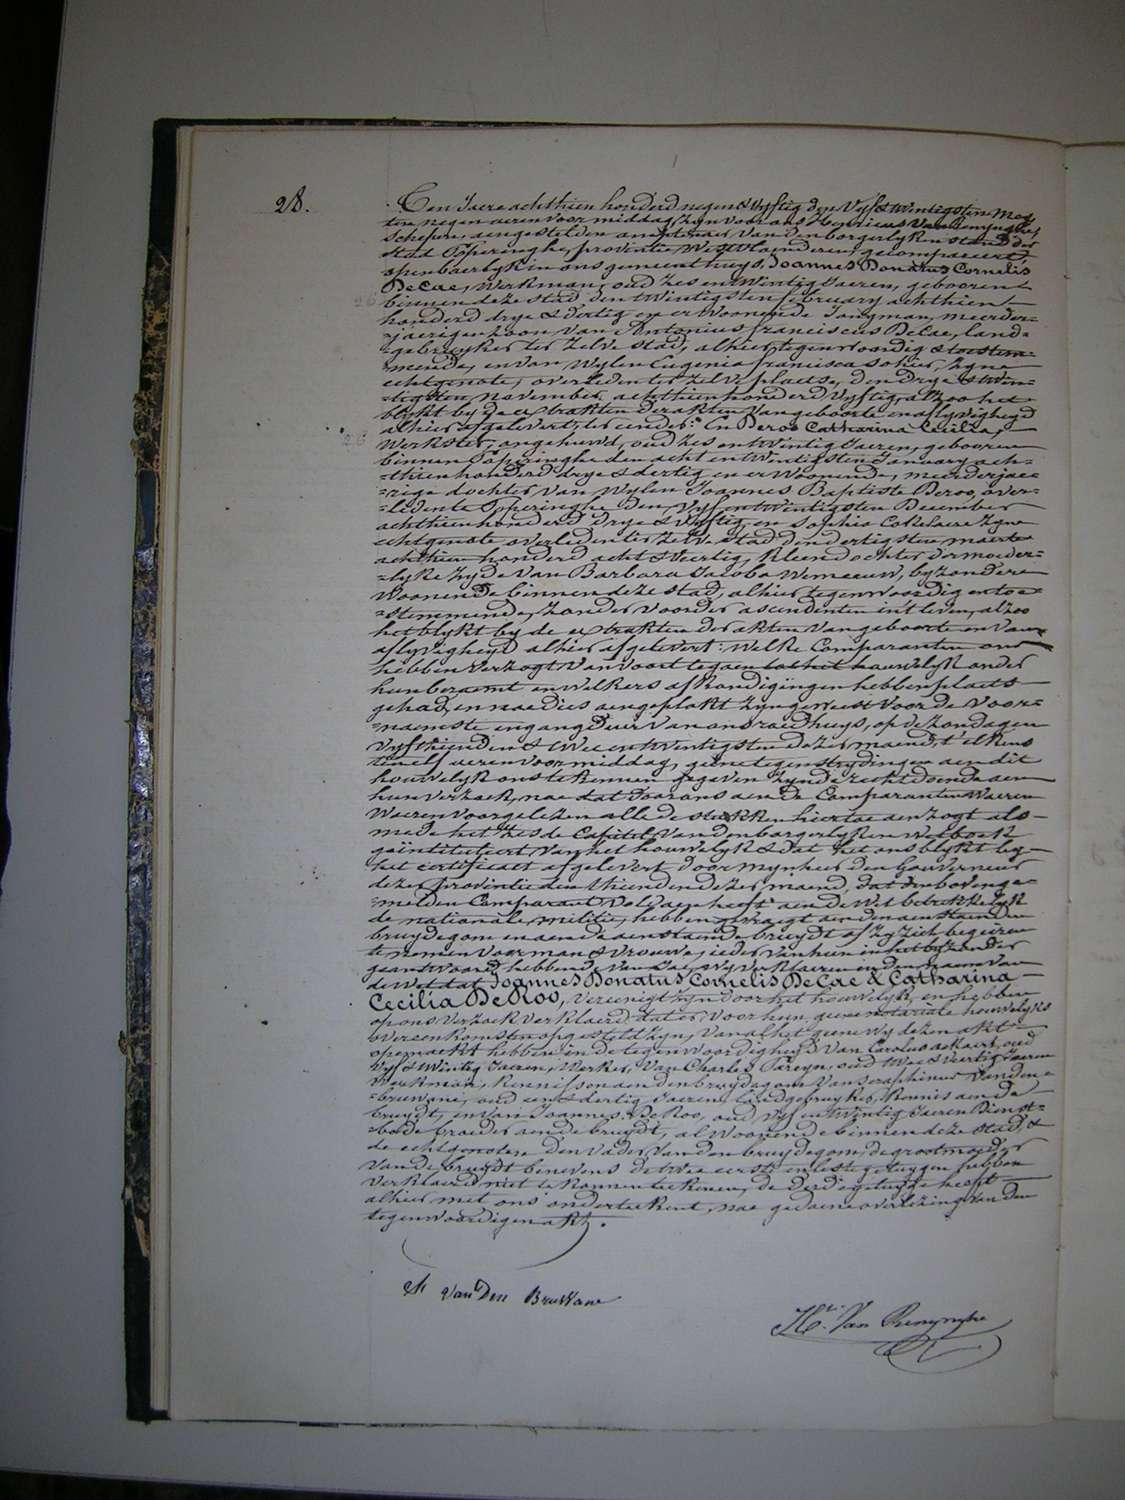 28.
Ten Jaere achthien honderd negen & Vyftig den Vyf & twintigsten Mey
ten negen ueren voor middag zyn voor ons Henricus Van Renynghe
schepen, aengestelden amptenaer van den borgerlyken stand der
stad Poperinghe, provintie Westvlaenderen, gecompareert
openbaerlyk in ons gemeentehuys, Joannes Donatus Cornelis
DeCae, Werkman, oud zes en twintig Jaeren, geboren
binnen deze stad den twintigsten february achthien
honderd drye & dertig en er Woonende Jongman, meerder-
-jaerigen zoon van Antonius franciscus DeCae, land-
-gebruyker ter zelve stad, alhier tegenwoordig & toestem-
-mende, en van Wylen Eugenia francisca Sohier, zyne
echtgenote, overleden ter zelve plaetse, den drye & twin-
-tigsten november achthien honderd Vyftig, alzoo het
blykt by de extrakten der akten van geboorte en aflyvigheyd
alhier afgelevert, ter eender: En Deroo Catharina Cecilia,
Werkster, ongehuwd, oud zes en twintig Jaeren, geboren
binnen Poperinghe den acht en twintigsten January ach-
-thien honderd drye & dertig en er Woonende, meerderjae-
-rige dochter van Wylen Joannes Baptiste Deroo, over-
-leden te Poperinghe den Vyf en twintigsten December
achthien honderd drye & Vyftig, en Sophia Cokelaere zyne
echtgenote overleden ter zelve stad den dertigsten maerte
achthien honderd acht & Veertig, kleendochter der moeder-
-lyke zyde van Barbara Jacoba Wemeeuw, byzondere
Woonende binnen deze stad, alhier tegenwoordig en toe-
-stemmende, zonder voorder ascendenten in 't leven, alzoo
het blykt by de extrakten der akten van geboorte en van
aflyvigheyd alhier afgelevert: Welke Comparanten ons
hebben Verzogt van voort te gaen tot het houwelyk onder
hun beraemt en welkers afkondigingen hebben plaets
gehad, en naedies aengeplakt zyn geweest voor de voor-
-naemste ingangdeur van ons raedhuys, op de zondagen
Vyfthienden & twee en twintigsten dezer maend, t' elkens
ten elf ueren voor middag, geene tegenstrydingen aen dit
houwelyk ons te kennen gegeven zynde recht doende aen
hun verzoek, nae dat door ons aen de Comparanten Waeren
Waeren voorgelezen alle de stukken hiertoe aenzogt als-
mede het zesde Capitel van den borgerlyken wetboek
geïntituleert, van het houwelyk & dat het ons blykt by
het certificaet afgelevert door mynheer den Gouverneur
dezer provintie den thienden dezer maend, dat den bovenge-
-melden Comparant Voldaen heeft aen de Wet betrekkelyk
de nationale militie, hebben gevraegt aen den aenstaenden
bruydegom en aen de aenstaende bruydt of zy zich begeiren
te nemen voor man & vrouw, ieder van hun in het byzonder
geantwoord hebbende van Jae, Wy Verklaeren in den naem van
de Wet dat Joannes Donatus Cornelis DeCae & Catharina
Cecilia DeRoo, Vereenigt zyn door het houwelyk, en hebben
op ons verzoek verklaerd dat er voor hun geene notariale houwelyks
overeenkomsten opgesteld zyn, Van al het geene wy dezen akt
opgemaekt hebben in de tegenwoordigheyd van Carolus Ackaert, oud
Vyf & twintig Jaeren, Werker, Van Charles Pareyn, oud twee & veertig Jaeren
Werkman, kennissen aen den bruydegom Van Seraphinus Vanden-
-bruwane, oud een & dertig Jaeren, landgebruyker, kennis aen de
bruydt, en van Joannes DeRoo, oud Vyf en twintig Jaeren Dienst-
-bode broeder aen de bruydt, al Woonende binnen deze stad, &
de echtgenoten den Vader van den bruydegom, de grootmoeder
van de bruydt benevens de twee eerste en leste getuygen hebben
verklaerd niet te konnen teekenen, de derde getuyge heeft
alhier met ons onderteekent, nae gedaene overlezing van den
tegenwoordigen akt.
S Van Den BruWane
Hri. Van Renynghe